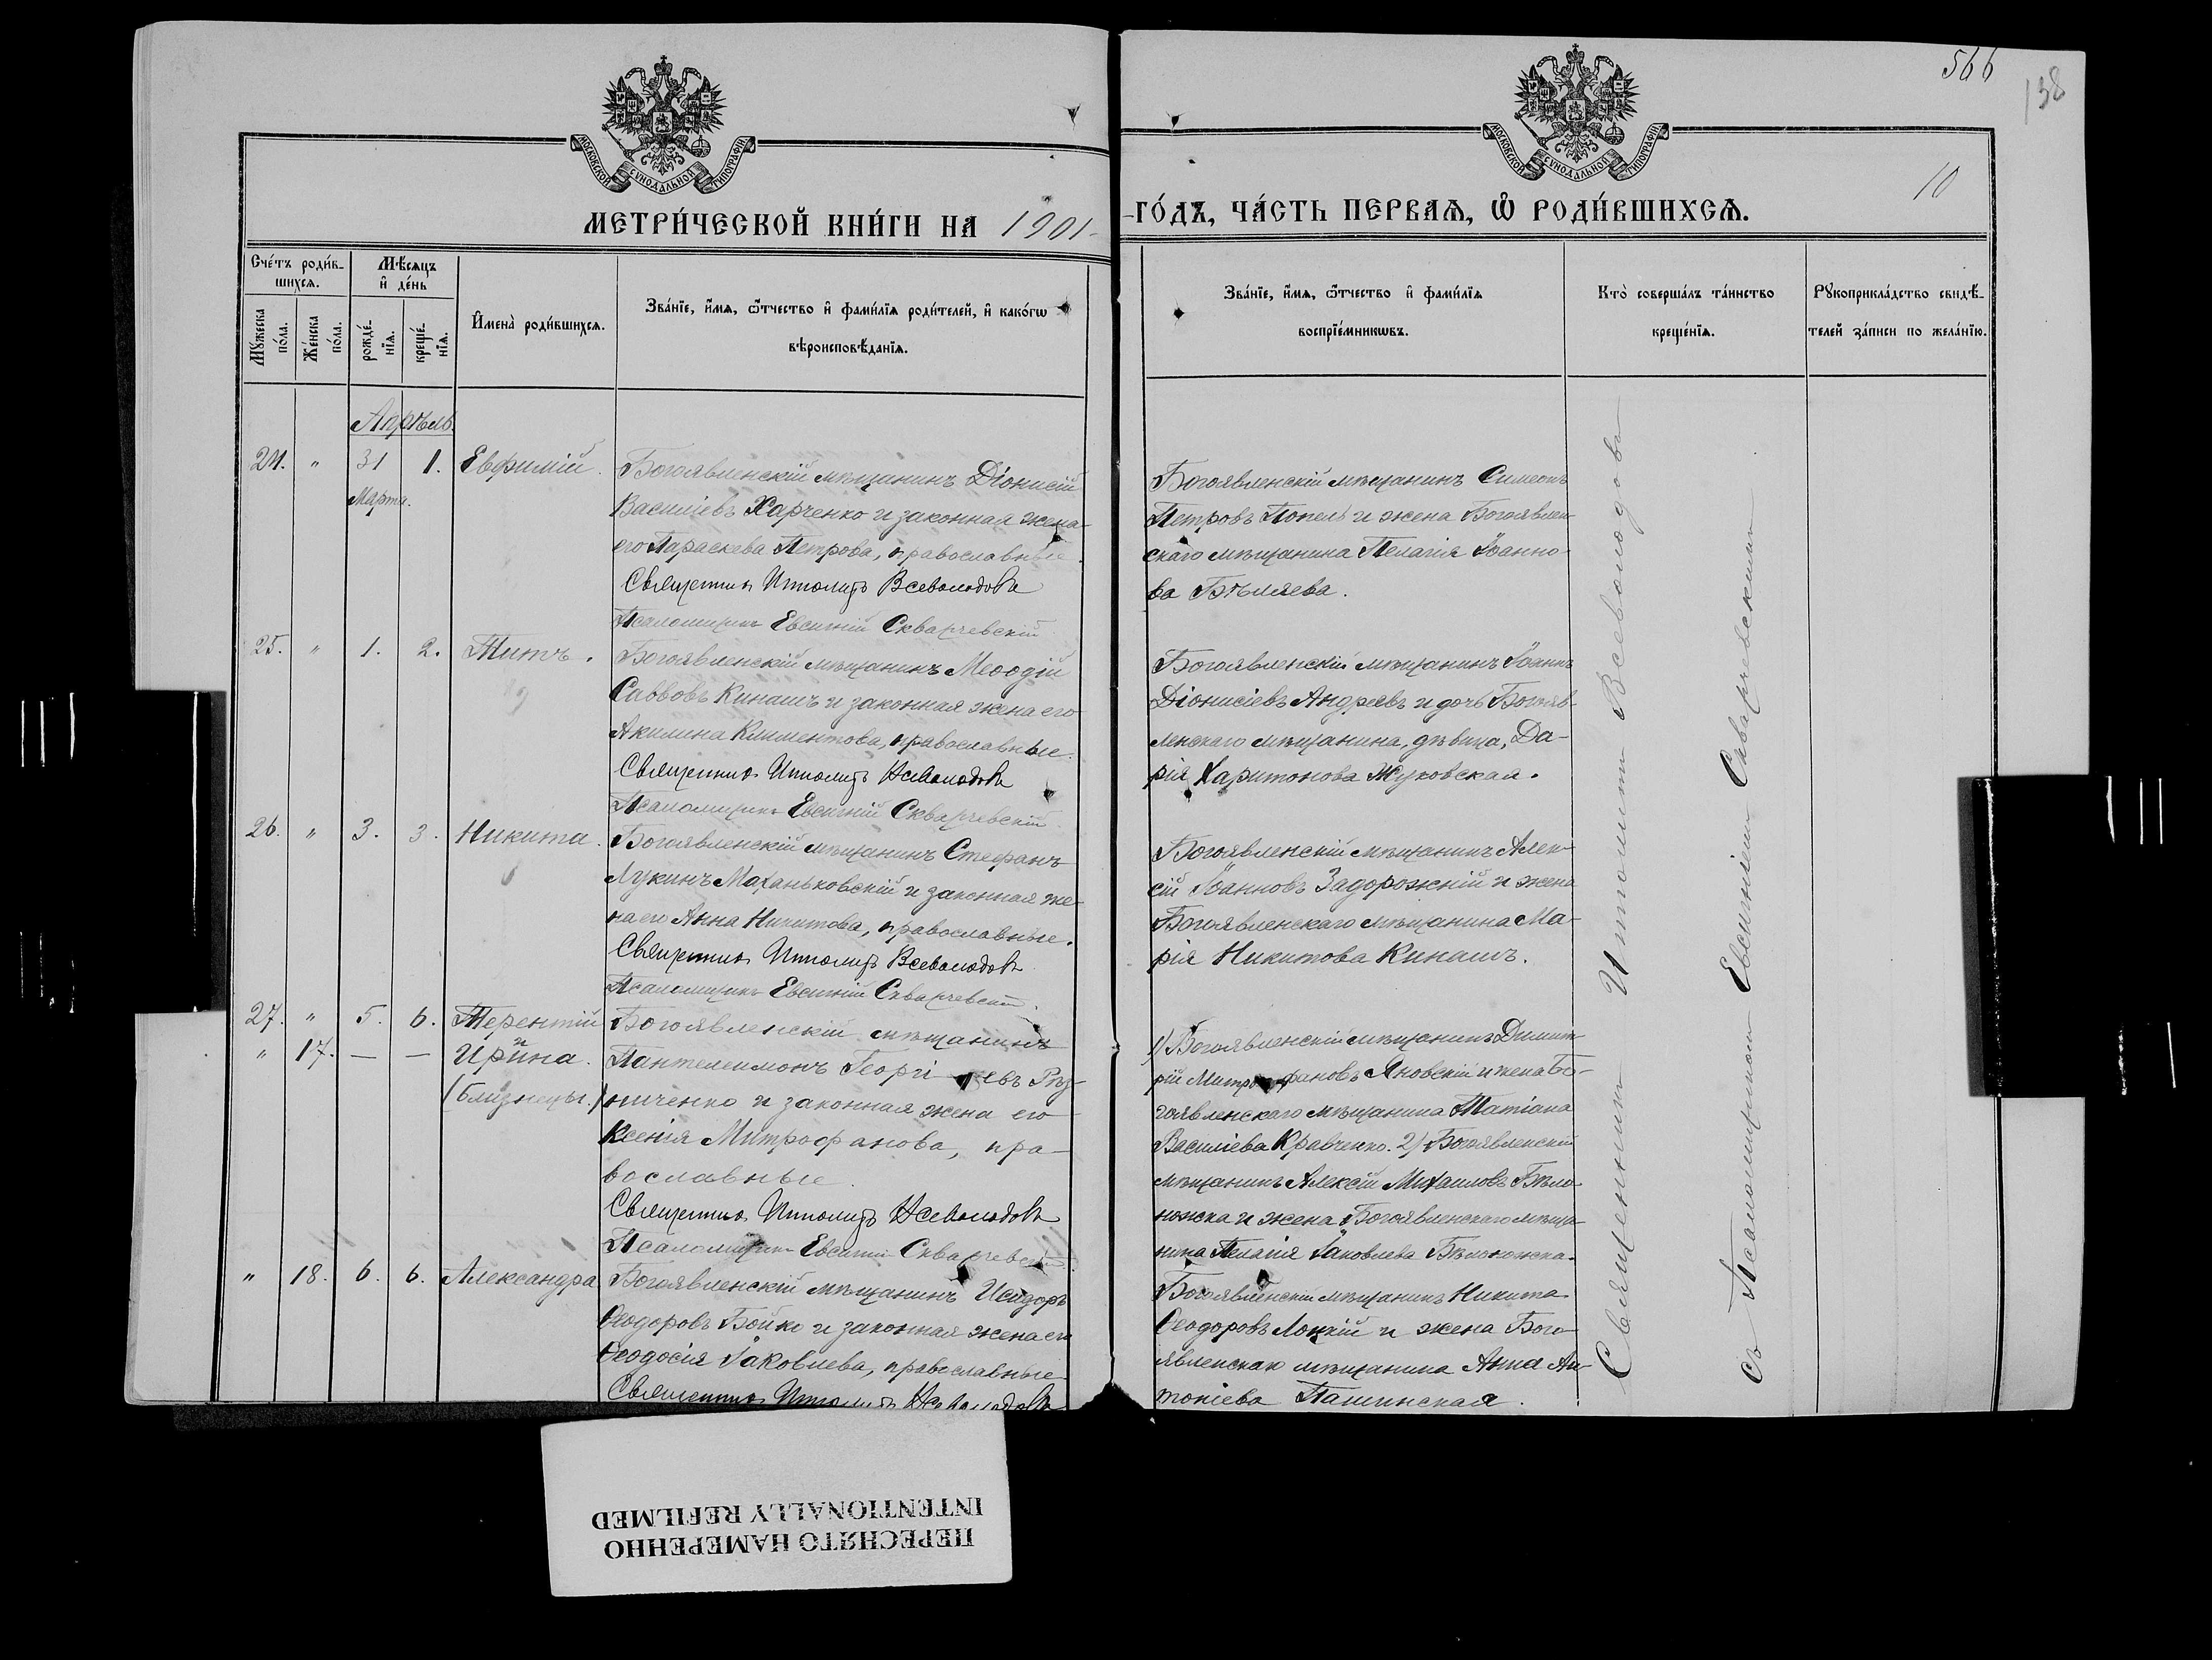 566
138
10
МОСКОВСКОЙ СѴНОДАЛЬНОЙ ТИПОГРАФІИ
МОСКОВСКОЙ СѴНОДАЛЬНОЙ ТИПОГРАФІИ
МЕТРИ́ЧЕСКОЙ КНИ́ГИ НА 1901-
-ГО́ДЪ, ЧА́СТЬ ПЕРВАѦ, Ѡ҆ РОДИ́ВШИХСѦ.
Сче́тъ роди́в-
шихсѧ.
Мꙋ́жеска по́ла.
Же́нска по́ла.
Мѣ́сѧцъ
и҆ де́нь
рожде́-
нїѧ.
креще́-
нїѧ.
И҆мена̀ роди́вшихсѧ.
Зва́нїе, и҆́мѧ, ѻ҆́тчество и҆ фами́лїѧ роди́телей, и҆ како́гѡ
вѣроисповѣ́данїѧ.
Зва́нїе, и҆́мѧ, ѻ҆́тчество и҆ фами́лїѧ
воспрїе́мникѡвъ.
Кто̀ соверша́лъ та́инство
креще́нїѧ.
Рꙋкоприкла́дство свидѣ́-
телей за́писи по жела́нїю.
Апрѣль.
24. " 31 1. Евфимій.
Марта.
Богоявленскій мѣщанинъ Діонисій
Василіевъ Харченко и законная жена
его Параскева Петрова, православные.
Священникъ Ипполитъ Всеволодовъ
Псаломщикъ Евсигній Скварчевскій
Богоявленскій мѣщанинъ Симеонъ
Петровъ Попель и жена Богоявлен-
скаго мѣщанина Пелагія Іоанно-
ва Бѣляева.
25. " 1. 2. Титъ.
Богоявленскій мѣщанинъ Меѳодій
Саввовъ Кинашъ и законная жена его
Акилина Климентова, православные.
Священникъ Ипполитъ Всеволодовъ
Псаломщикъ Евсигній Скварчевскій
Богоявленскій мѣщанинъ Іоаннъ
Діонисіевъ Андреевъ и дочь Богояв-
ленскаго мѣщанина, дѣвица, Да-
рія Харитонова Жуковская.
26. " 3. 3. Никита.
Богоявленскій мѣщанинъ Стефанъ
Лукинъ Маханьковскій и законная же-
на его Анна Никитова, православные.
Священникъ Ипполитъ Всеволодовъ
Псаломщикъ Евсигній Скварчевскій.
Богоявленскій мѣщанинъ Алек-
сій Іоанновъ Задорожній и жена
Богоявленскаго мѣщанина Ма-
рія Никитова Кинашъ.
27. " 5. 6. Терентій
и
" 17. — — Ирина.
(близнецы.)
Богоявленскій мѣщанинъ
Пантелеимонъ Георгіевъ Рѣз-
ниченко и законная жена его
Ксенія Митрофанова, пра-
вославные.
Священникъ Ипполитъ Всеволодовъ
Псаломщикъ Евсигній Скварчевскій.
1) Богоявленскій мѣщанинъ Димит-
рій Митрофановъ Яновскій и жена Бо-
гоявленскаго мѣщанина Татіана
Василіева Кравченко. 2) Богоявленскій
мѣщанинъ Алексій Михаиловъ Бѣло-
ножка и жена Богоявленскаго мѣща-
нина Пелагія Іаковлева Бѣлоножка.
" 18. 6. 6. Александра
Богоявленскій мѣщанинъ Исидоръ
Ѳеодоровъ Бойко и законная жена его
Ѳеодосія Іаковлева, православные
Священникъ Ипполитъ Всеволодовъ
Богоявленскій мѣщанинъ Никита
Ѳеодоровъ Лоцкій и жена Бого-
явленскаго мѣщанина Анна Ан-
тоніева Пашинская.
Священникъ Ипполитъ Всеволодовъ
съ Псаломщикомъ Евсигніемъ Скварчевскимъ
ПЕРЕСНЯТО НАМЕРЕННО
INTENTIONALLY REFILMED